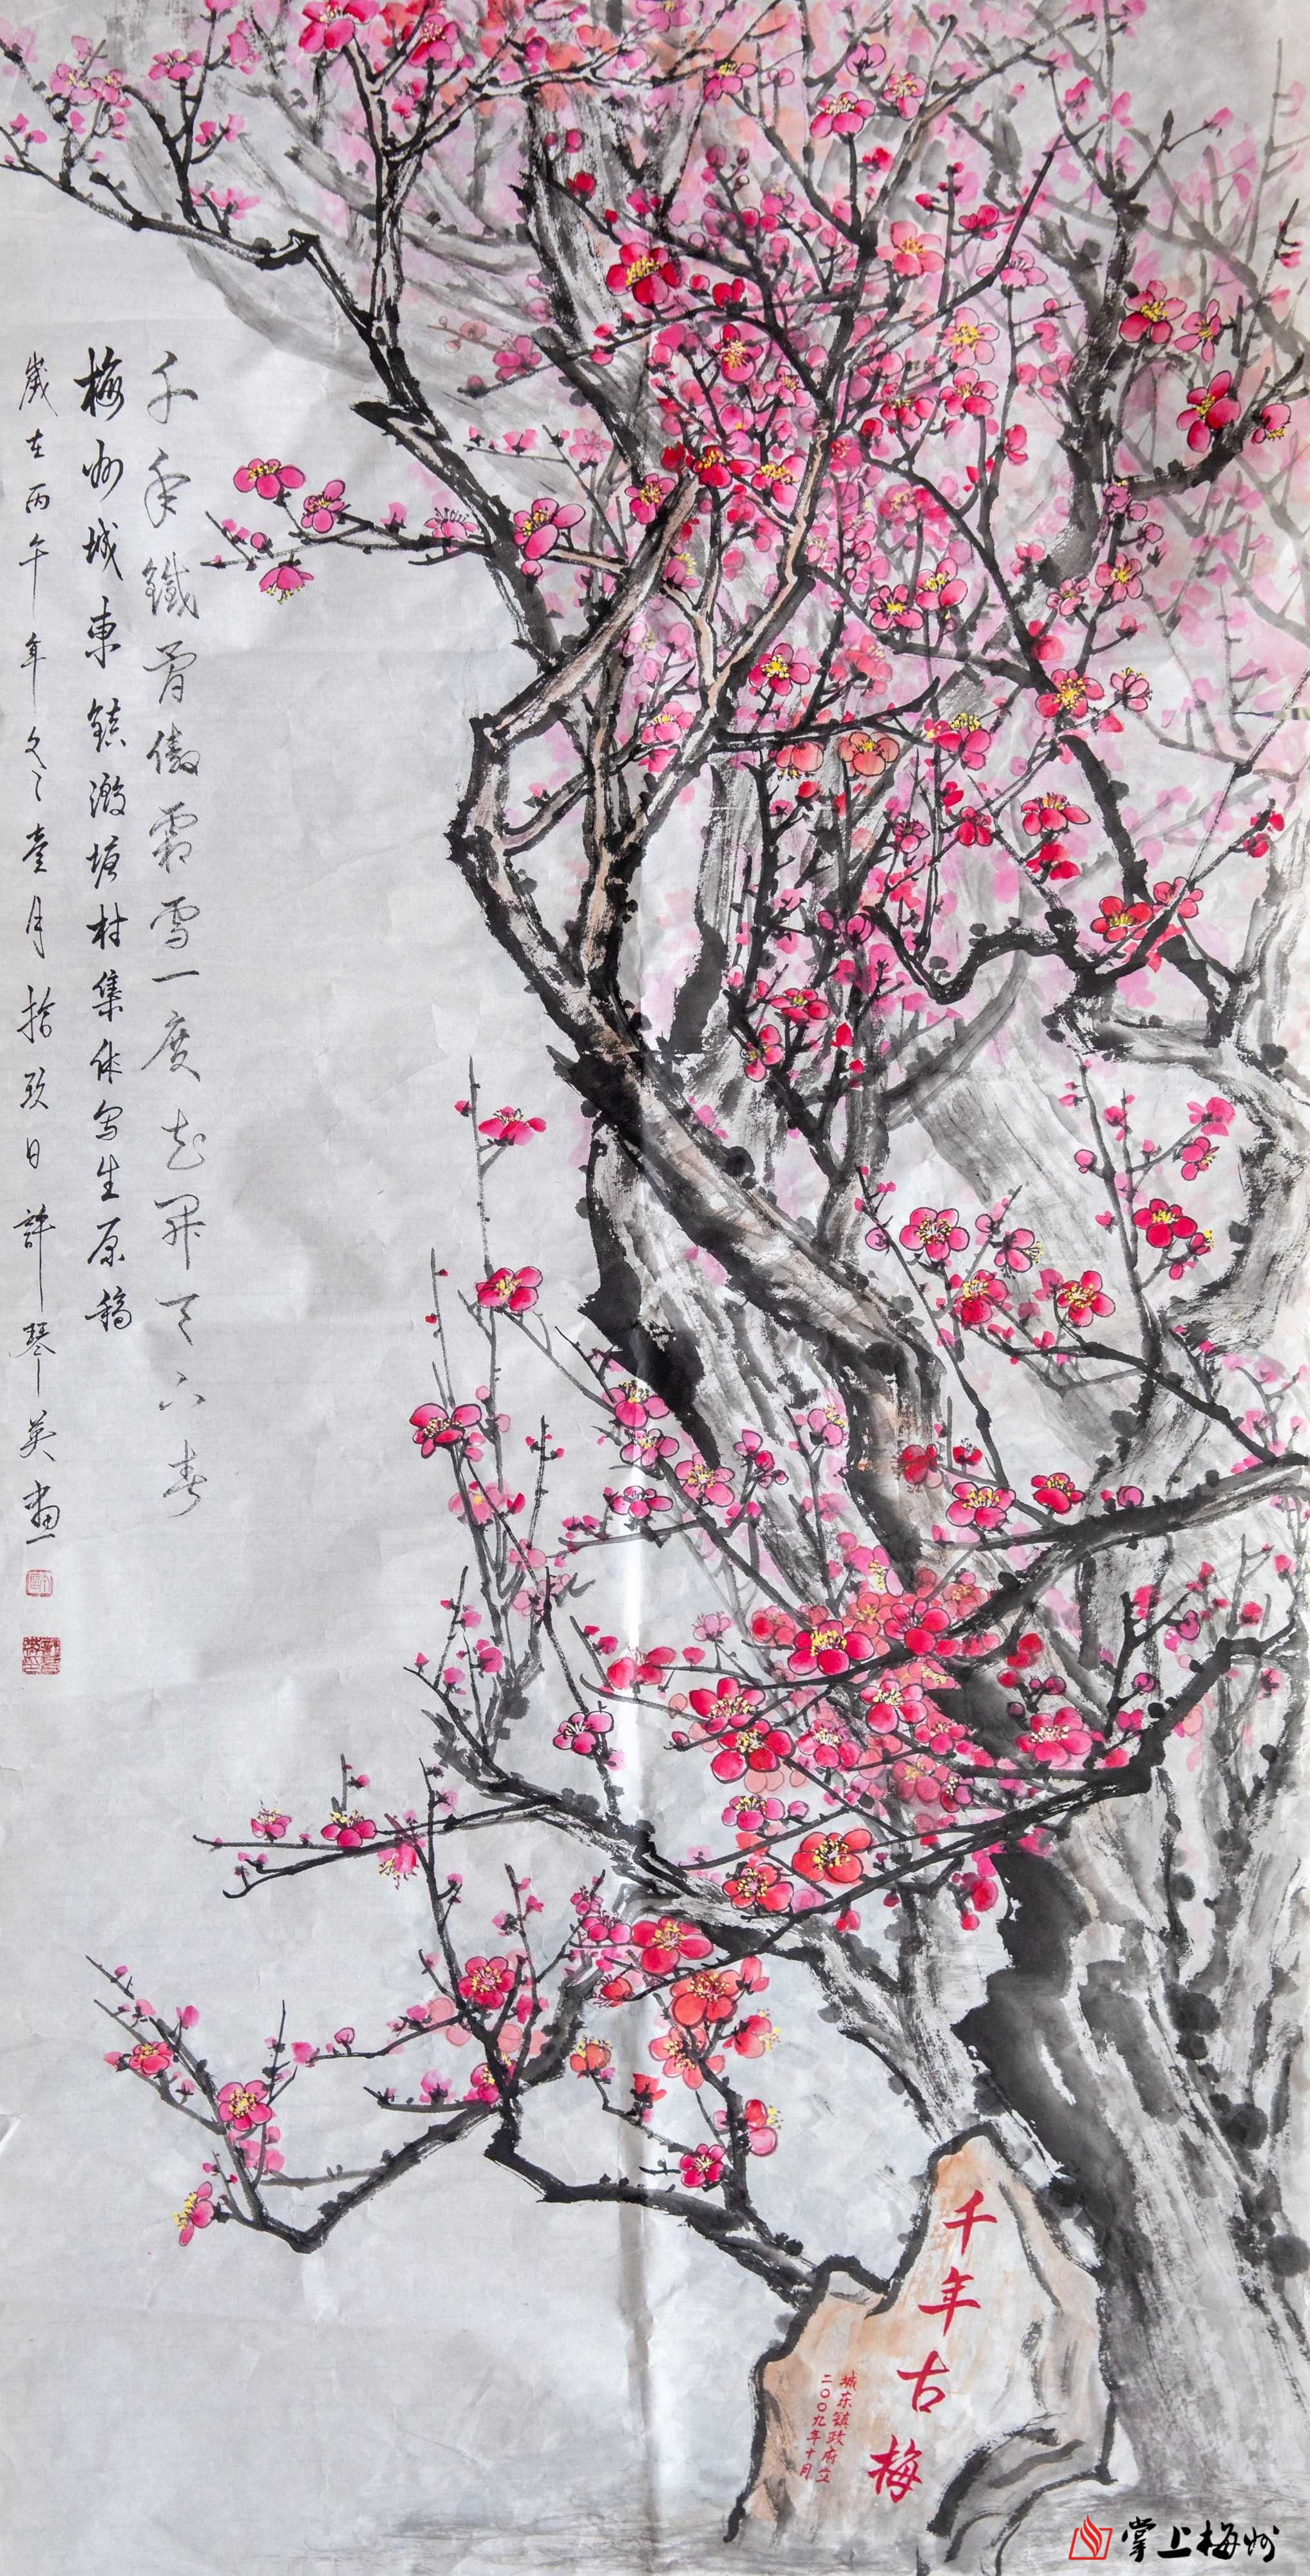 千年鐵骨傲霜雪一度花開天下春
梅州城東鎮潋塘村集体写生原稿
歲在丙午年冬壹月拾玖日許琴英畫
千年古梅
城东镇政府立
二〇〇九年十月
掌上梅州